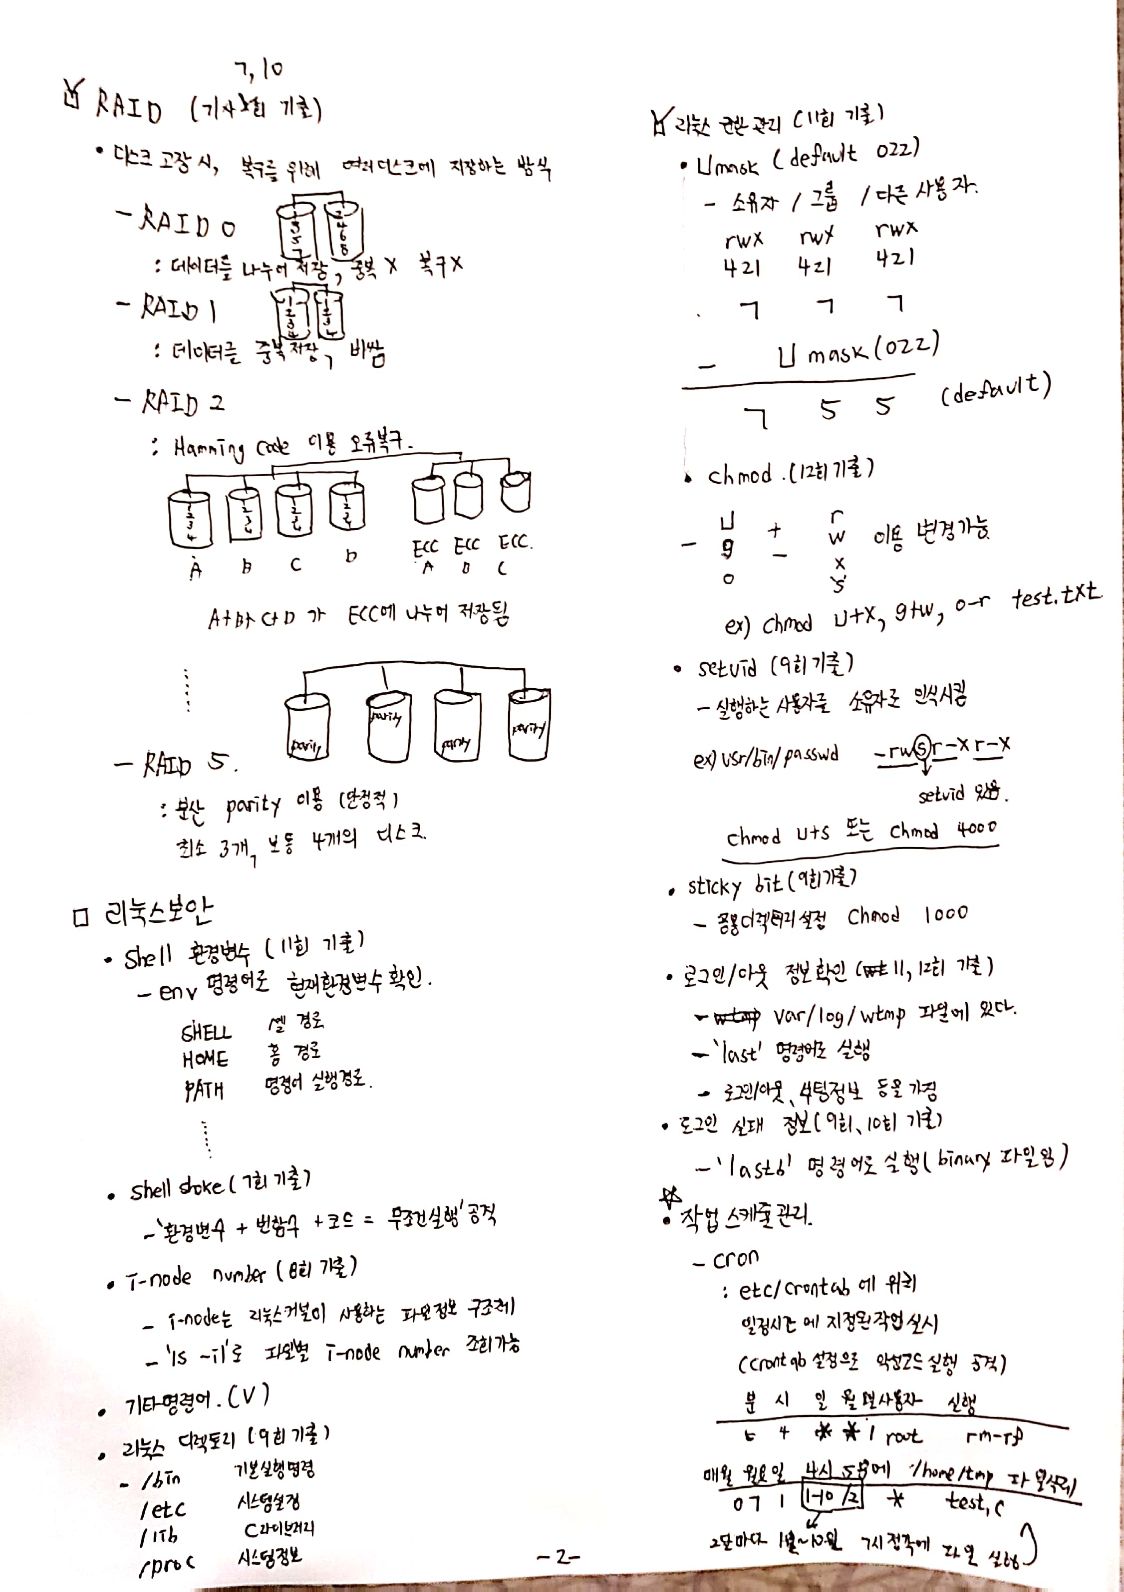 7, 10
RAID (기사 회 기출)
• 디스크 고장 시, 복구를 위해 여러디스크에 저장하는 방식
- RAID 0
1 3 5 7
2 4 6 8
: 데이터를 나누어 저장, 중복 X 복구X
- RAID 1
1 2 3 4
1 2 3 4
: 데이터를 중복저장, 비쌈
- RAID 2
: Hamming code 이용 오류복구.
1 2 3 4
1 2 3 4
1 2 3 4
1 2 3 4
A B C D
ECC A ECC B ECC. C
A+B+C+D 가 ECC에 나누어 저장됨
parity parity parity parity
- RAID 5.
: 분산 parity 이용 (안정적)
최소 3개, 보통 4개의 디스크.
□ 리눅스보안
• Shell 환경변수 (11회 기출)
- env 명령어로 현재환경변수 확인.
SHELL 쉘 경로
HOME 홈 경로
PATH 명령어 실행경로.
• Shell shoke (7회 기출)
- '환경변수 + 빈함수 + 코드 = 무조건실행' 공격
• i-node number (8회 기출)
- i-node는 리눅스커널이 사용하는 파일정보 구조체
- 'ls -il'로 파일별 i-node number 조회가능
• 기타명령어. (V)
• 리눅스 디렉토리 (9회 기출)
- /bin 기본실행명령
/etc 시스템설정
/lib C라이브러리
/proc 시스템정보
리눅스 권한 관리 (11회 기출)
• Umask (default 022)
- 소유자 / 그룹 / 다른 사용자.
rwx rwx rwx
421 421 421
7 7 7
- Umask (022)
7 5 5 (default)
• chmod. (12회 기출)
- u + r
g - w 이용 변경가능.
o x
s
ex) chmod u+x, g+w, o-r test.txt
• setuid (9회 기출)
- 실행하는 사용자를 소유자로 인식시킴
ex) usr/bin/passwd -rwsr-xr-x
setuid 있음.
chmod u+s 또는 chmod 4000
• sticky bit (9회기출)
- 공용디렉터리설정 chmod 1000
• 로그인/아웃 정보확인 (11, 12회 기출)
- wtmp var/log/wtmp 파일에 있다.
- 'last' 명령어로 실행
- 로그인/아웃, 부팅정보 등을 가짐
• 로그인 실패 정보 (9회, 10회 기출)
- 'lastb' 명령어로 실행 (binary 파일임)
☆
• 작업 스케줄관리.
- cron
: etc/crontab 에 위치
일정시간에 지정된작업 실시
(crontab 설정으로 악성코드 실행 공격)
분 시 일 월 요일 사용자 실행
5 4 * * 1 root rm-rf
매월 월요일 4시 5분에 /home/tmp 파일삭제
0 7 1 1-10/2 * test.c
2달마다 1월~10월 7시정각에 파일 실행
-2-